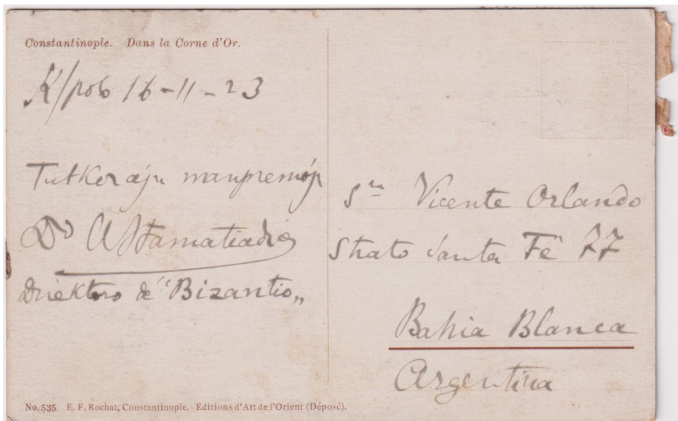 Constantinople. Dans la Corne d'Or.
K/pob 16-11-23
Tutkorajn manpremojn
Dro A Stamatiadis
Direktoro de "Bizantio„
Sro Vicente Orlando
Strato Santa Fè 77
Bahia Blanca
Argentina
No. 535. E. F. Rochat, Constantinople. Editions d'Art de l'Orient (Déposé).